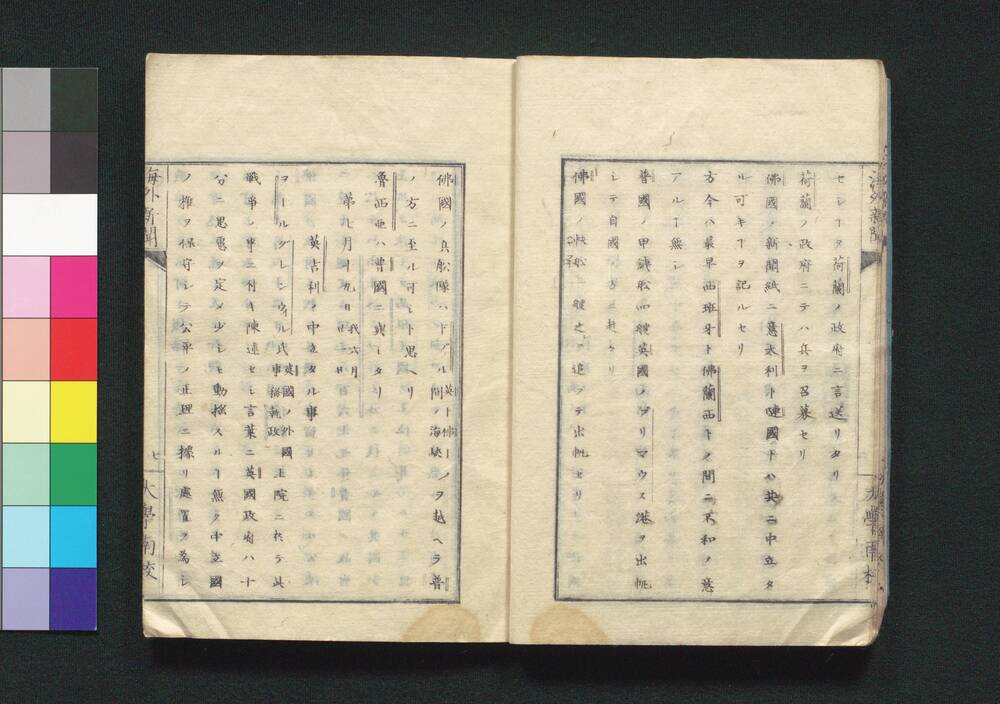 セシコヲ荷蘭ノ政府ニ言送リタリ
荷蘭ノ政府ニテハ兵ヲ召募セリ
佛國ノ新聞紙ニ意太利ト璉國トハ共ニ中立タ
ル可キコヲ記ルセリ
方今ハ最早西班牙ト佛蘭西トノ間ニ不和ノ意
アルコ無シ
普國ノ甲鐵船四艘英國ノプリマウス港ヲ出帆
シテ自國ノ方ニ赴ケリ
佛國ノ鐵船二艘之ヲ追フテ出帆セリ
海外新聞
大學南校
佛國ノ兵舩隊ハドヷル英ト佛トノ間ノ海峽ヲ越ヘテ普
ノ方ニ至ル可シト思ヘリ
魯西亜ハ普國ニ與シタリ
第七月十九日我六月廿一日
英吉利ノ中立タル事
ヲールグレンウィル氏英國ノ外國事務執政上院ニ於テ此
戦争ノ事ニ付キ陳述セシ言葉ニ英國政府ハ十
分ニ思慮ヲ定メ少シモ動揺スルコ無ク中立國
ノ権ヲ保守シテ公平ノ正理ニ據リ處置ヲ為シ
海外新聞
七
大學南校